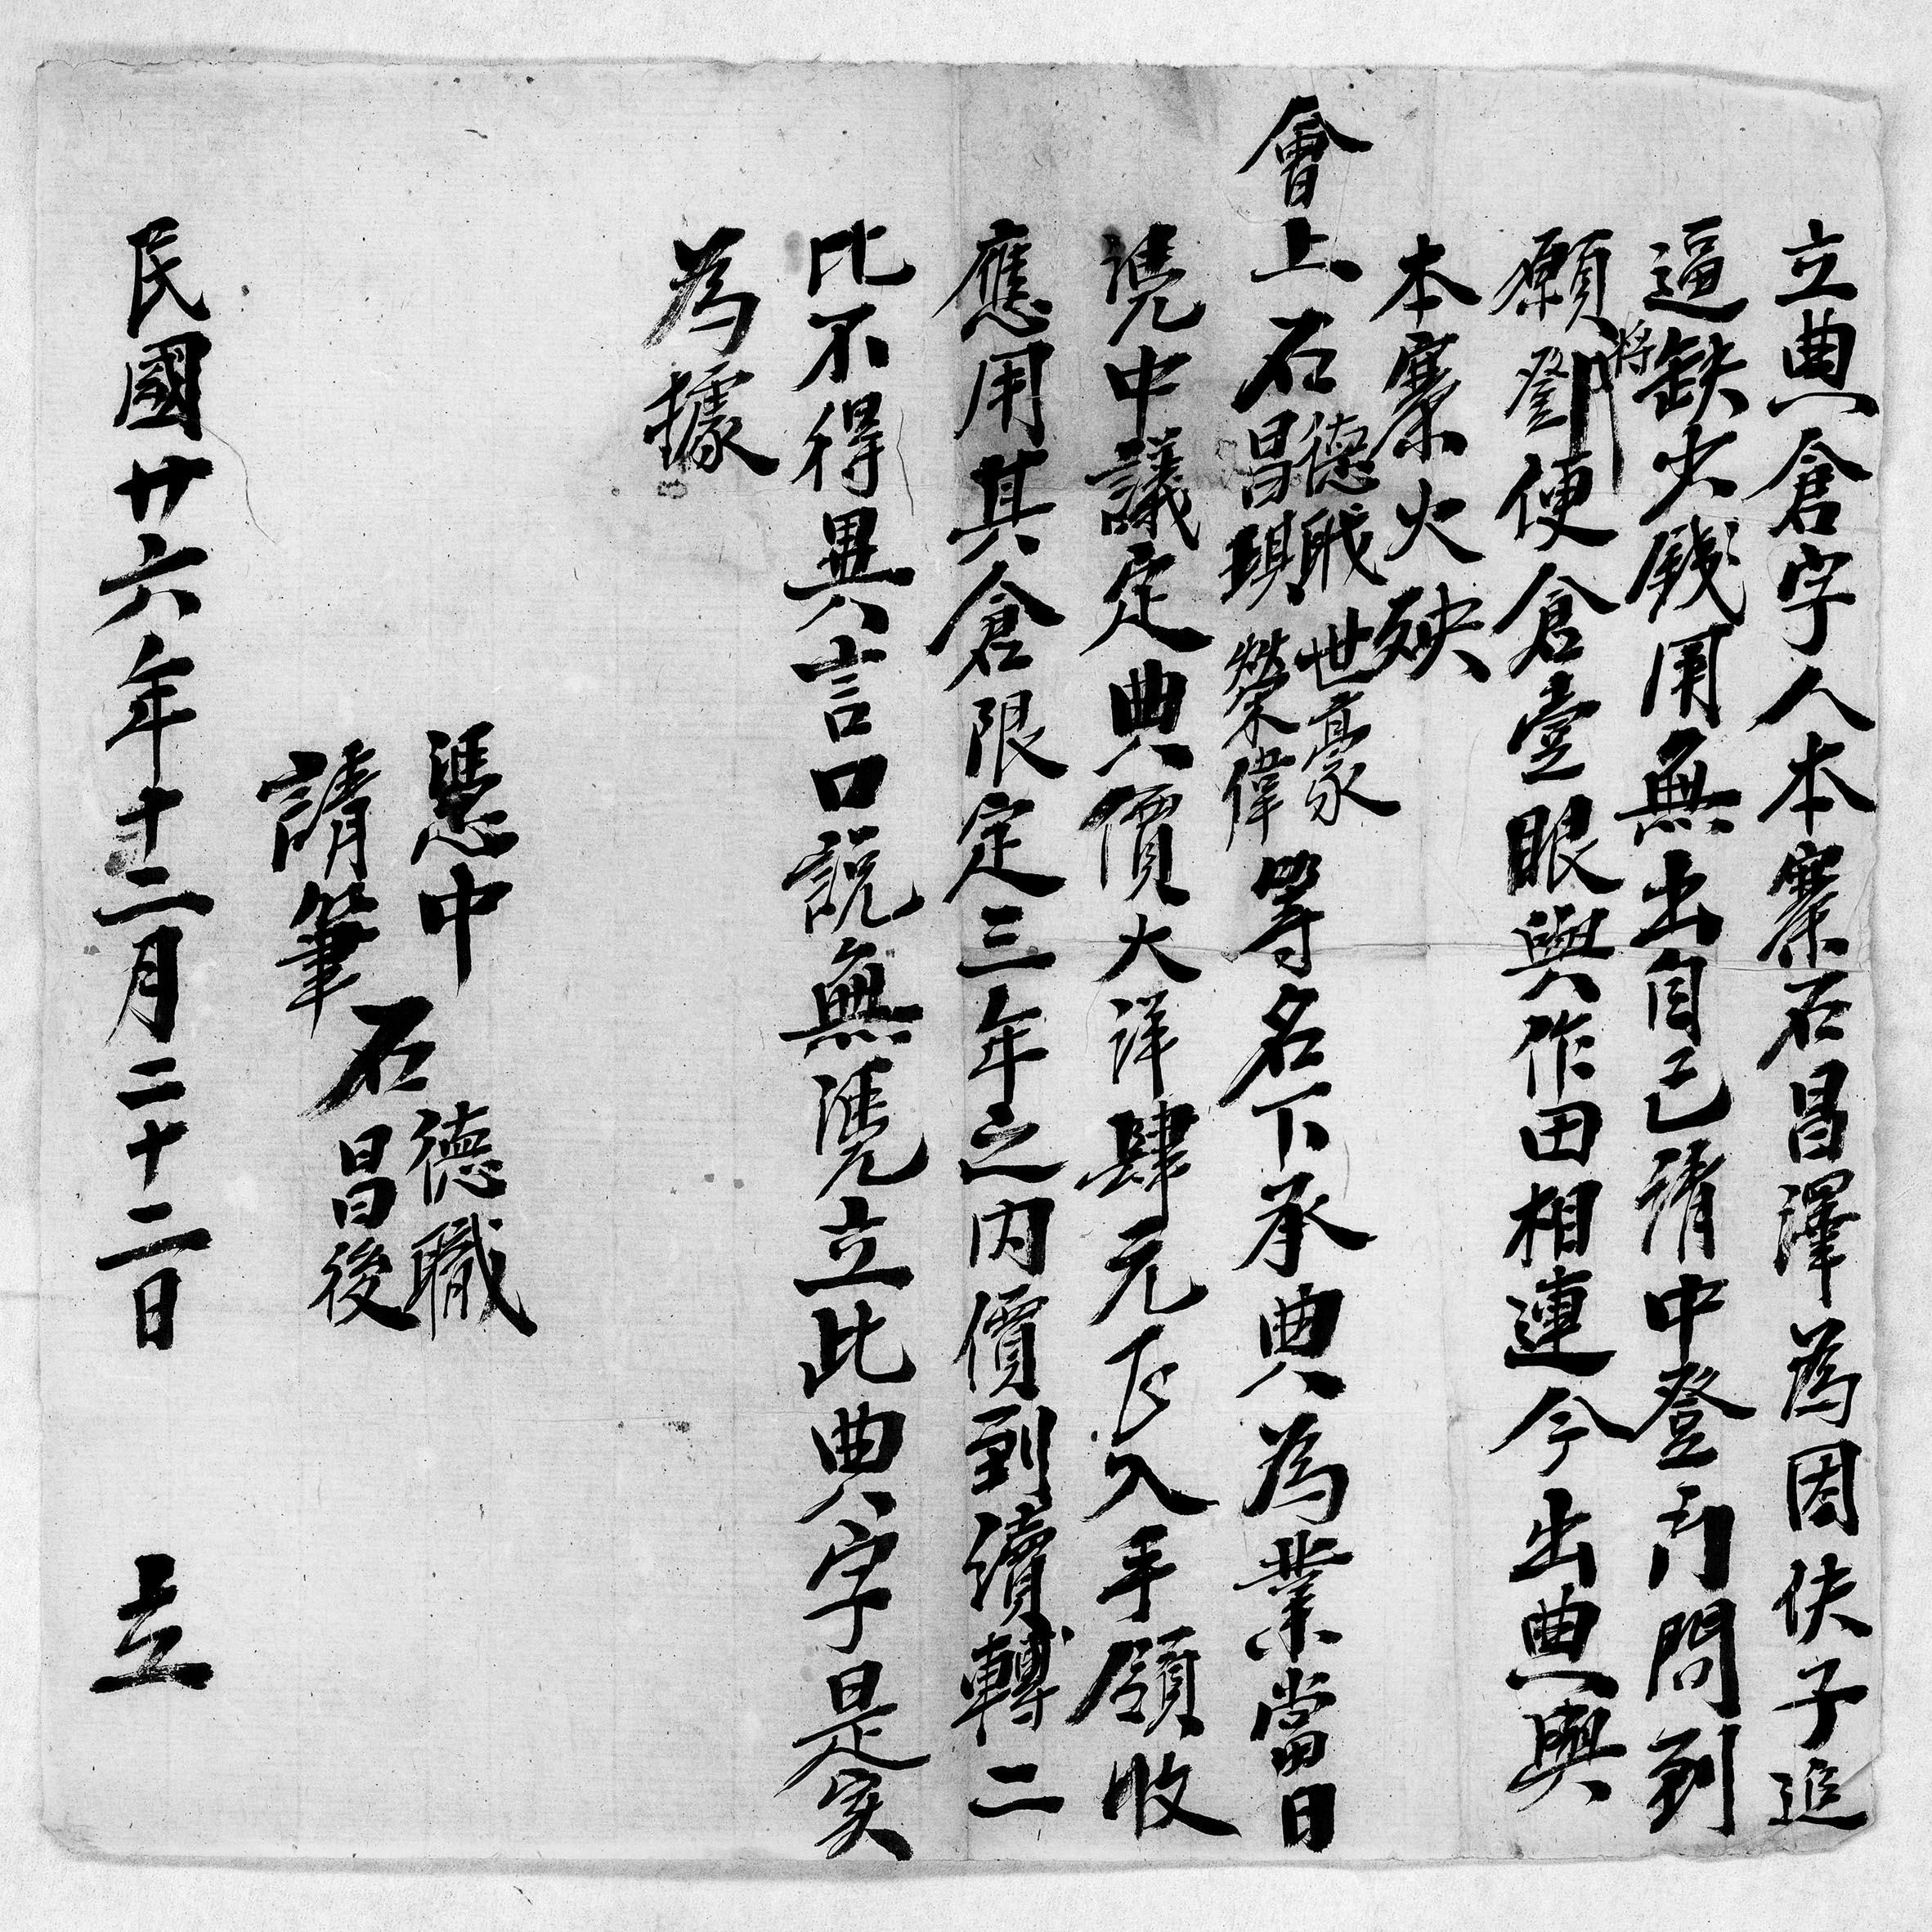 立典倉字人本寨石昌澤為因伕子追
逼缺少錢用無出自己請中登門問到
願將登門便倉壹眼與作田相連今出典與
本寨火殃
會上石德職昌琪世豪榮偉等名下承典為業當日
凴中議定典價大洋肆元正入手領收
應用其倉限定三年之內價到續轉二
比不得異言口說無凴立此典字是实
為據
憑中 石德職
請筆 昌後
民國廿六年十二月二十二日 立